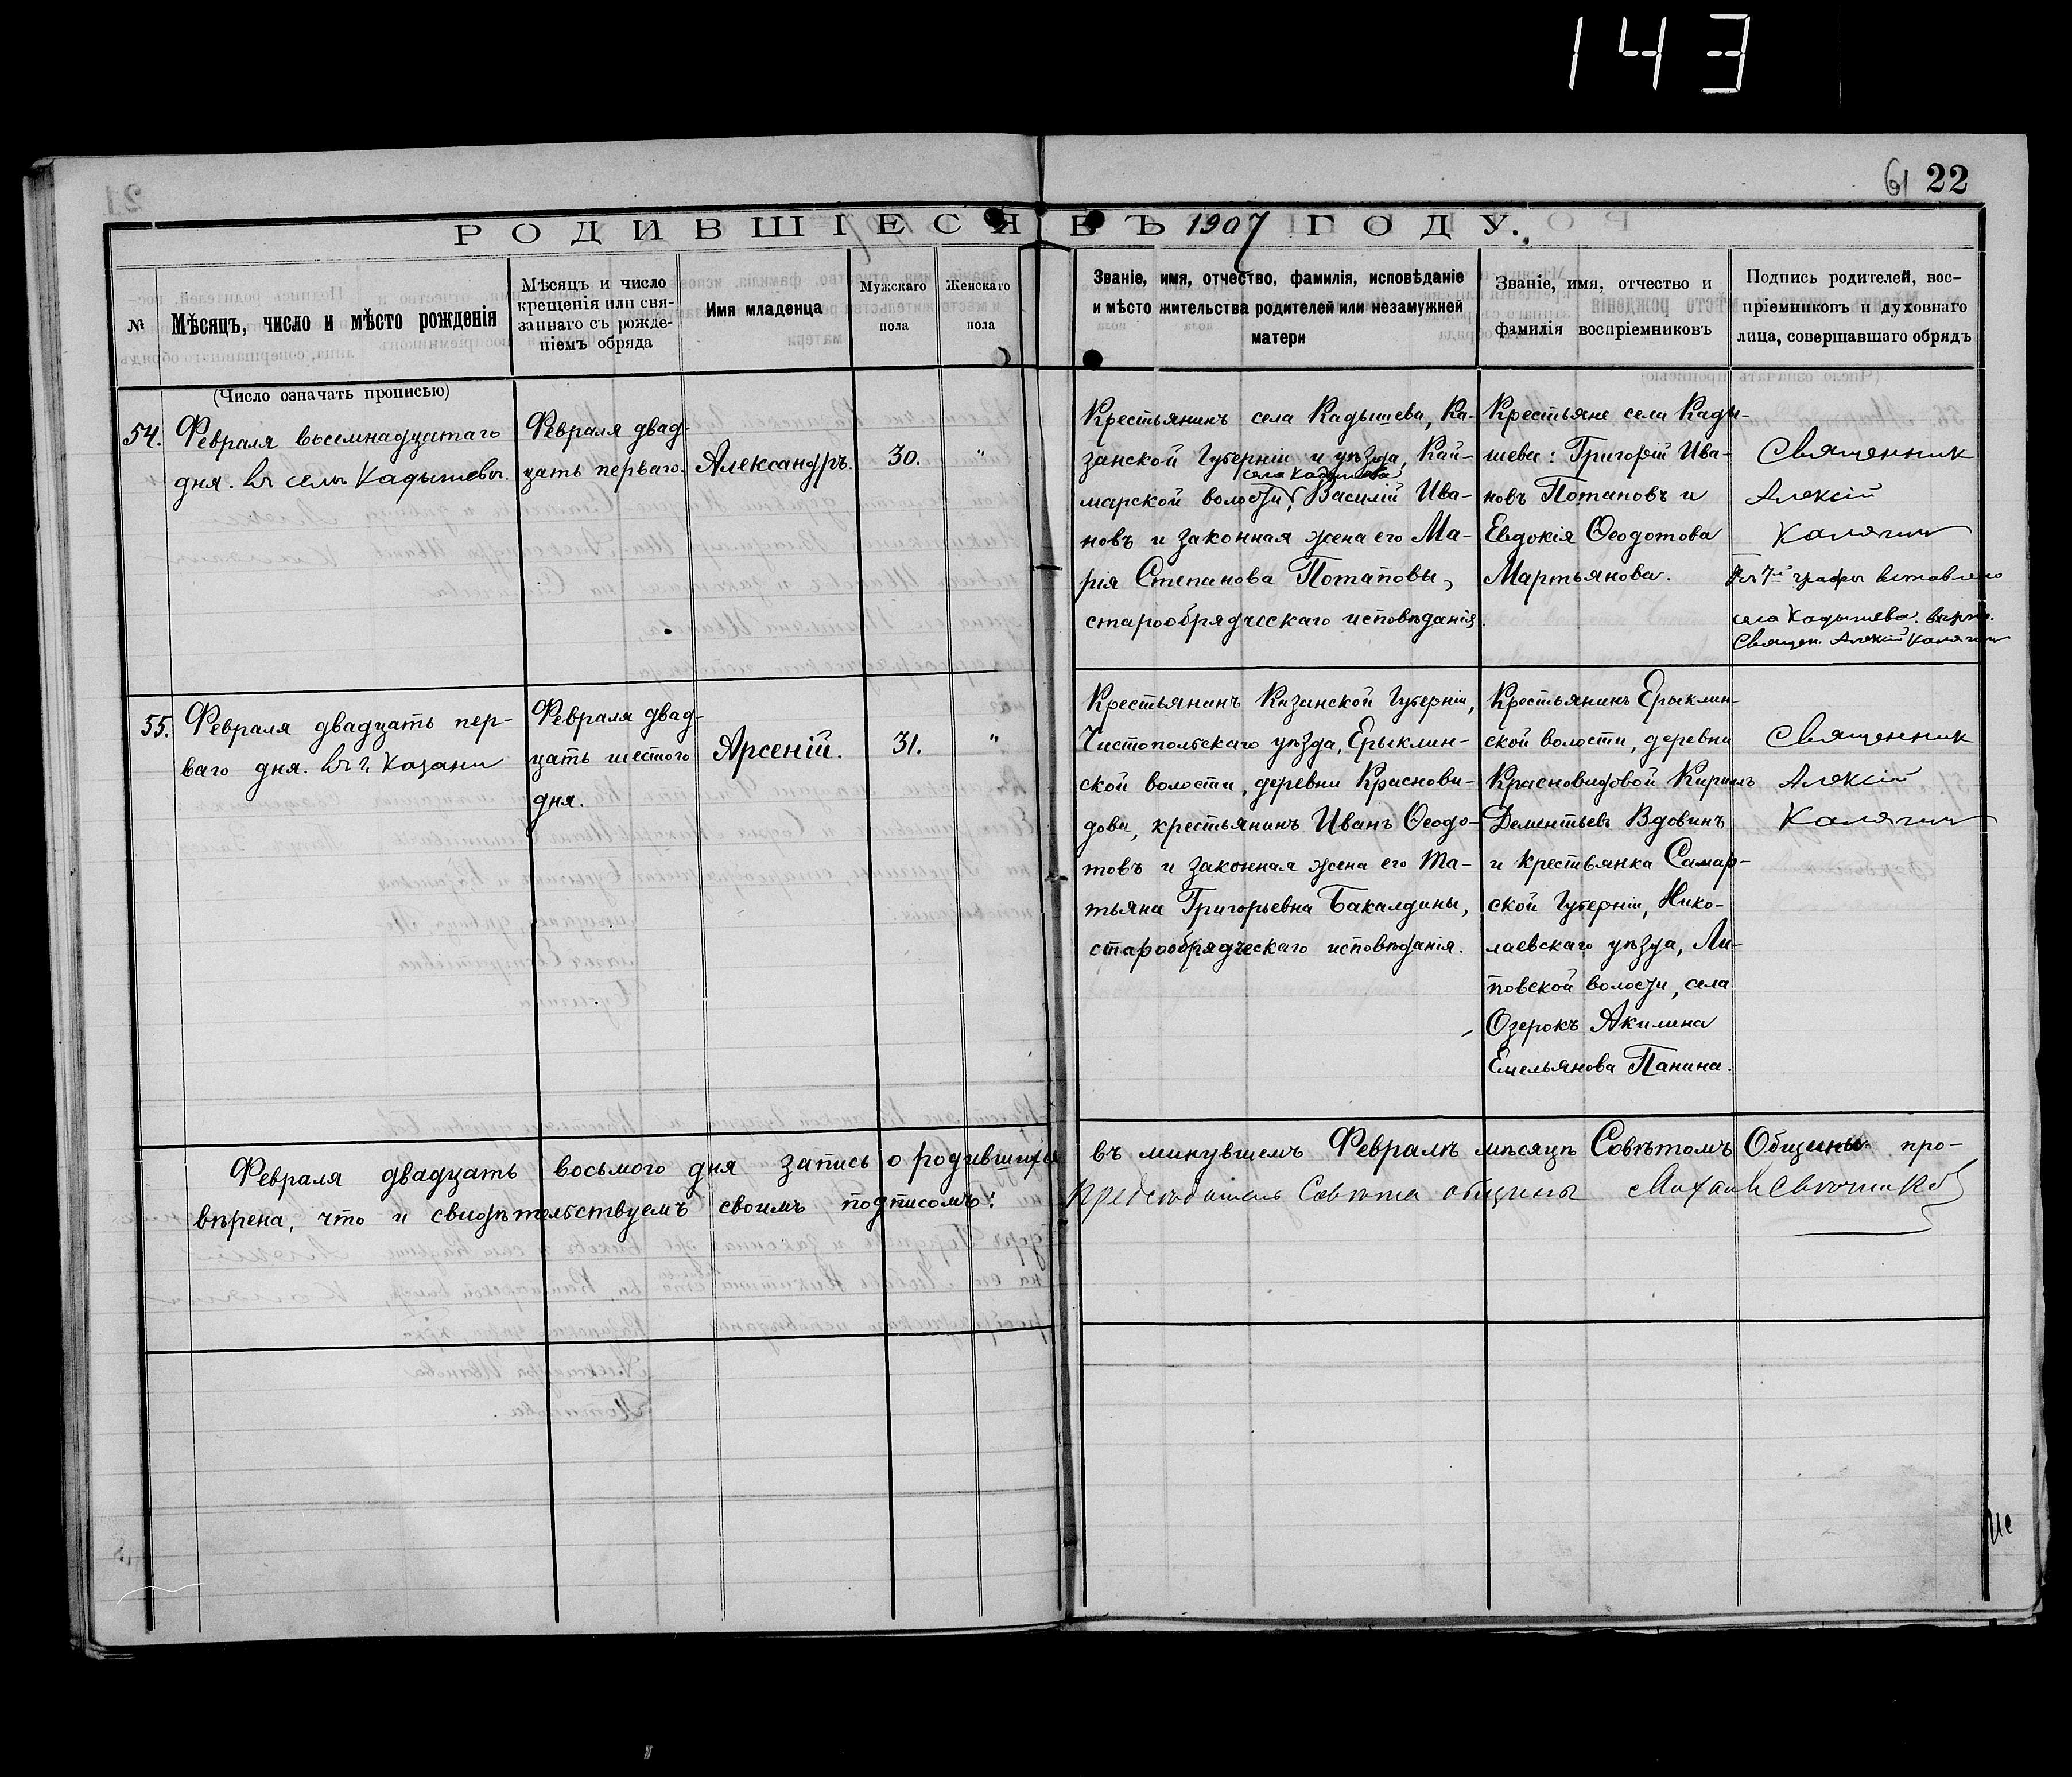 143
61 22
РОДИВШІЕСЯ ВЪ 1907 ГОДУ.
№
Мѣсяцъ, число и мѣсто рожденія
Мѣсяцъ и число
крещенія или свя-
заннаго съ рожде-
ніемъ обряда
Имя младенца
Мужскаго
пола
Женскаго
пола
Званіе, имя, отчество, фамилія, исповѣданіе
и мѣсто жительства родителей или незамужней
матери
Званіе, имя, отчество и
фамилія воспріемниковъ
Подпись родителей, вос-
пріемниковъ и духовнаго
лица, совершавшаго обрядъ
(Число означать прописью)
54.
Февраля восемнадцатаго
дня. въ селѣ Кадышевѣ.
Февраля двад-
цать перваго.
Александръ.
30.
"
Крестьянинъ села Кадышева, Ка-
занской Губерніи и уѣзда, Кай-
села Кадышева
марской волости, Василій Ива-
новъ и законная жена его Ма-
рія Степанова Потаповы,
старообрядческаго исповѣданія.
Крестьяне села Кады-
шева: Григорій Ива-
новъ Потаповъ и
Евдокія Ѳеодотова
Мартьянова.
Священникъ
Алексій
Калягинъ
Въ 7й графѣ вставлено
села Кадышева. вѣрно.
Священ. Алексій Калягинъ
55.
Февраля двадцать пер-
ваго дня. въ г. Казани
Февраля двад-
цать шестого
дня.
Арсеній.
31.
"
Крестьянинъ Казанской Губерніи,
Чистопольскаго уѣзда, Ерыклин-
ской волости, деревни Краснови-
дова, крестьянинъ Иванъ Ѳеодо-
товъ и законная жена его Та-
тьяна Григорьевна Бакалдины,
старообрядческаго исповѣданія.
Крестьянинъ Ерыклин-
ской волости, деревни
Красновидовой Кирилъ
Дементьевъ Вдовинъ
и крестьянка Самар-
ской Губерніи, Нико-
лаевскаго уѣзда, Ли-
повской волости, села
Озерокъ Акилина
Емельянова Панина.
Священникъ
Алексій
Калягинъ
Февраля двадцать восьмого дня запись о родившихся въ минувшемъ Февралѣ мѣсяцѣ Совѣтомъ Общины про-
вѣрена, что и свидѣтельствуемъ своимъ подписомъ: Предсѣдатель Совѣта общины